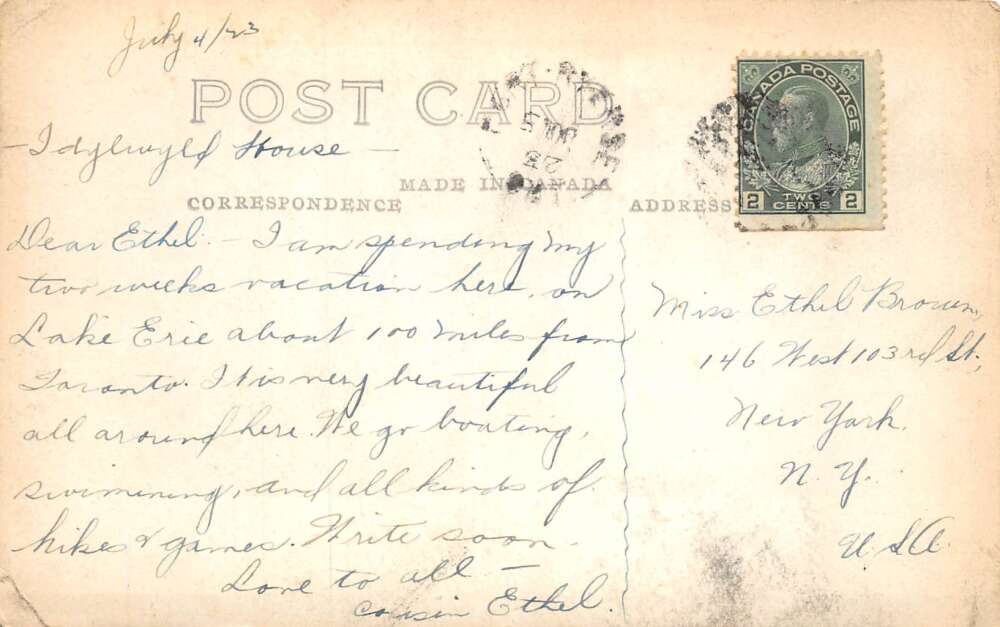 July 4/23
POST CARD
CANADA POSTAGE
- Idylwyld House -
JUL 5
23
MADE IN CANADA
CORRESPONDENCE
ADDRESS
2 TWO CENTS 2
Dear Ethel. - I am spending my
two weeks vacation here, on
Lake Erie about 100 miles from
Toronto. It is very beautiful
all around here. We go boating,
swimming, and all kinds of
hikes & games. Write soon.
Love to all -
Cousin Ethel.
Miss Ethel Brown,
146 West 103rd St.,
New York.
N. Y.
U S A.